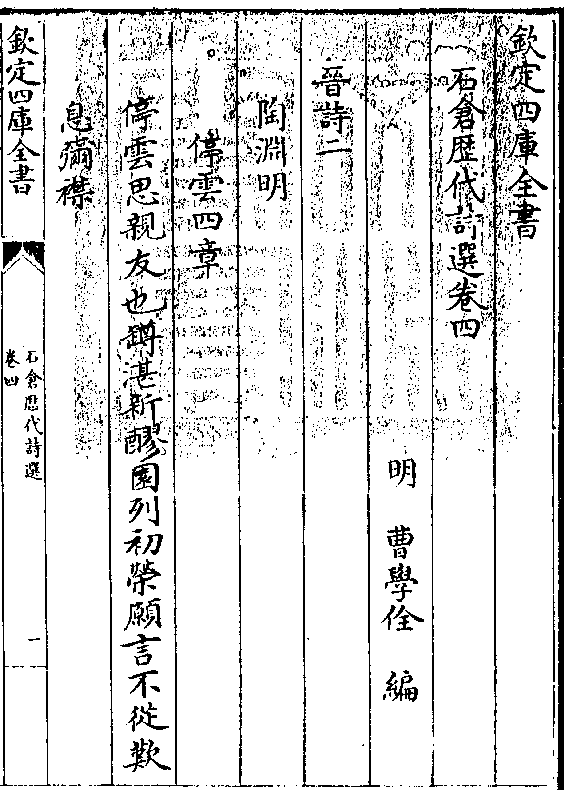 欽定四庫全書
石倉歴代詩選卷四
明 曹學佺 編
晉詩二
陶淵明
停雲四章
停雲思親友也罇湛新醪園列初榮願言不從歎
息彌襟
欽定四庫全書
石倉歴代詩選
卷四
一